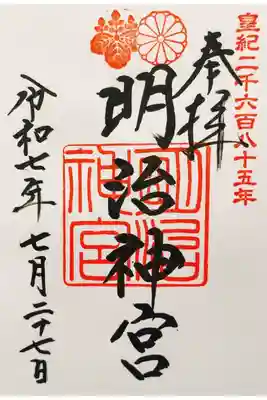 皇紀二千六百八十五年
奉拝
明治神宮
明治神宮
令和七年 七月二十七日